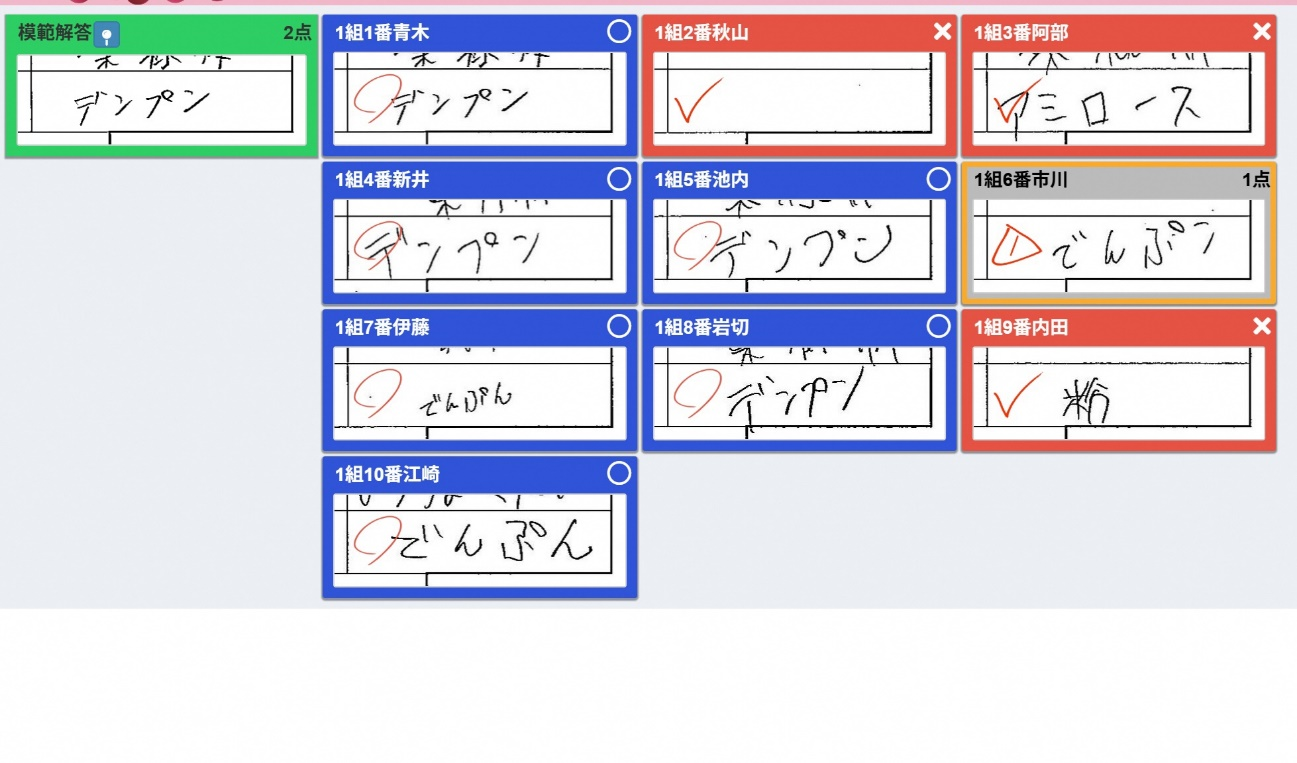 模範解答 2点
デンプン
1組1番青木
デンプン
1組2番秋山
1組3番阿部
アミロース
1組4番新井
デンプン
1組5番池内
デンプン
1組6番市川 1点
1 でんぷン
1組7番伊藤
でんぷん
1組8番岩切
デンプン
1組9番内田
粉
1組10番江崎
でんぷん